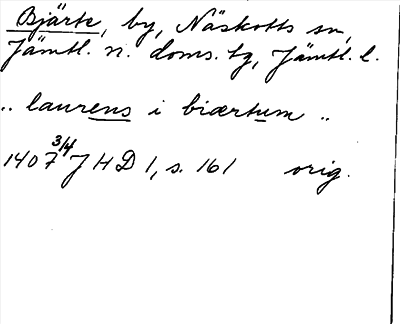 Bjärte, by, Näskotts sn,
Jämtl. n. doms. tg, Jämtl. l.
.. laurens i biærtum ..
1407 3/4 JHD 1, s. 161 orig.